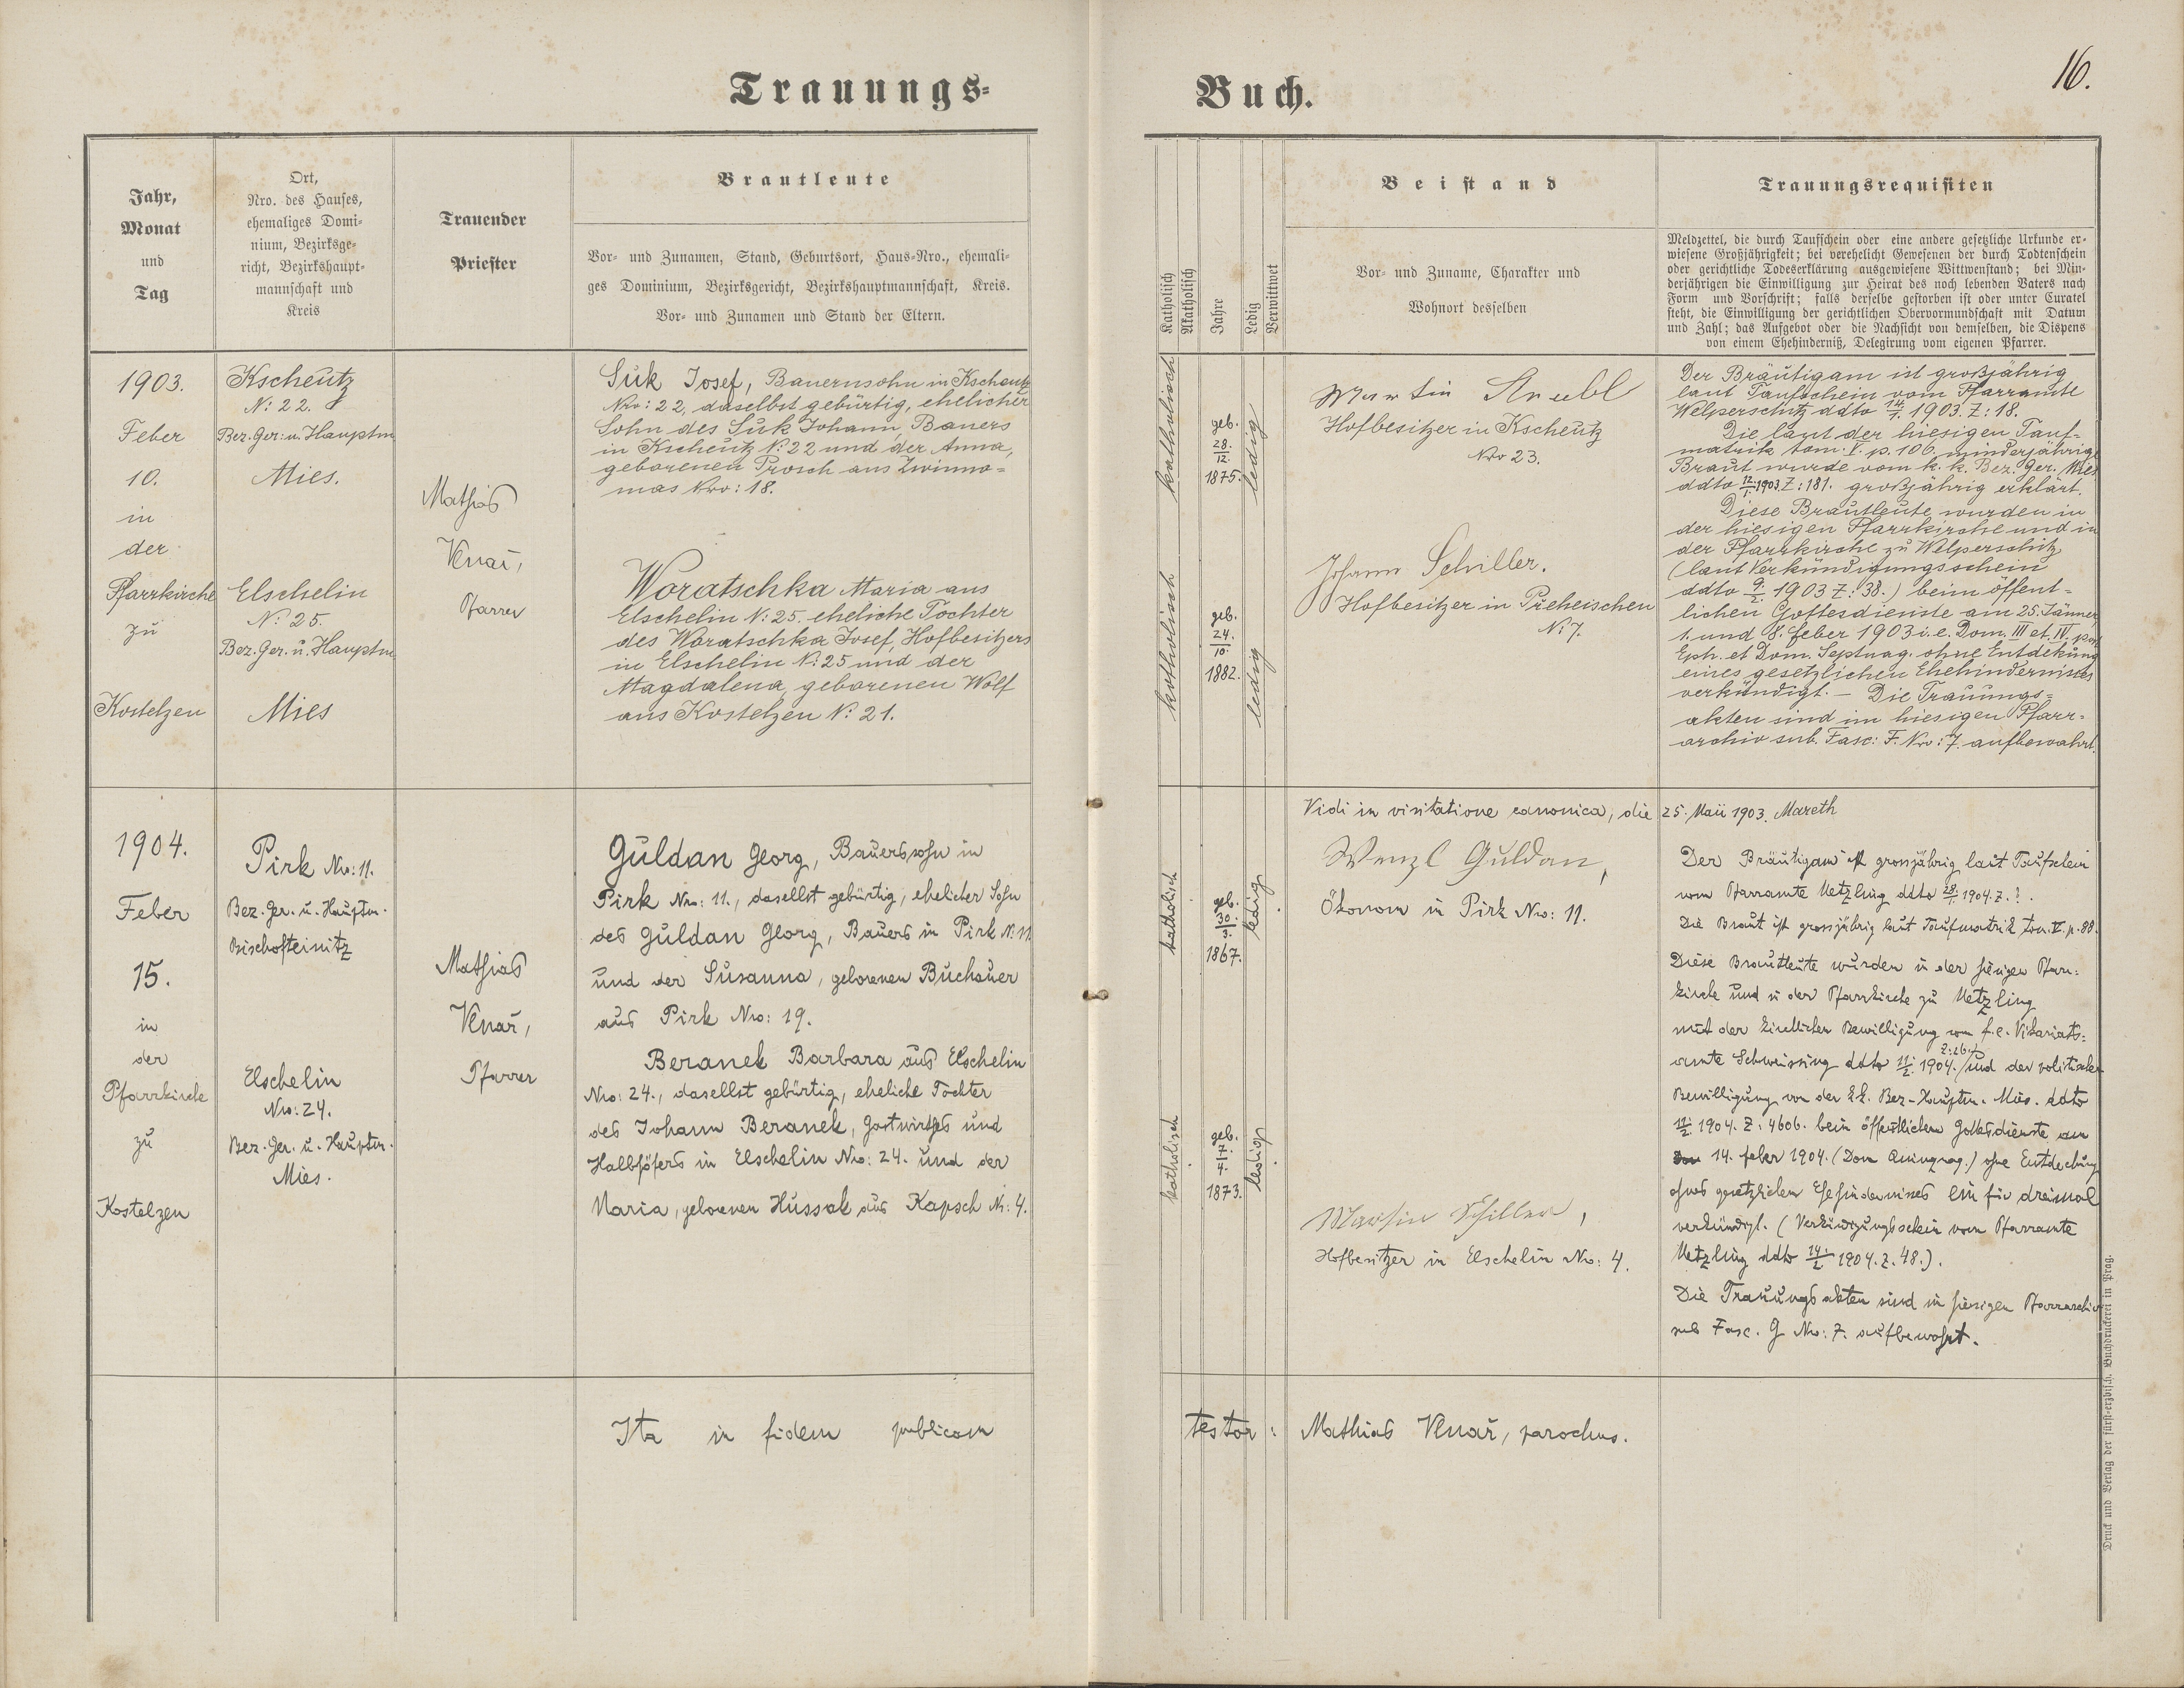 Trauungs-
Buch.
16.
Jahr,
Monat
und
Tag
Ort,
Nro. des Hauses,
ehemaliges Domi-
nium, Bezirksge-
richt, Bezirkshaupt-
mannschaft und
Kreis
Trauender
Priester
Brautleute
Vor- und Zunamen, Stand, Geburtsort, Haus-Nro., ehemali-
ges Dominium, Bezirksgericht, Bezirkshauptmannschaft, Kreis.
Vor- und Zunamen und Stand der Eltern.
Katholisch
Akatholisch
Jahre
Ledig
Verwittwet
Beistand
Vor- und Zuname, Charakter und
Wohnort desselben
Trauungsrequisiten
Meldzettel, die durch Taufschein oder eine andere gesetzliche Urkunde er-
wiesene Großjährigkeit; bei verehelicht Gewesenen der durch Todtenschein
oder gerichtliche Todeserklärung ausgewiesene Wittwenstand; bei Min-
derjährigen die Einwilligung zur Heirat des noch lebenden Vaters nach
Form und Vorschrift; falls derselbe gestorben ist oder unter Curatel
steht, die Einwilligung der gerichtlichen Obervormundschaft mit Datum
und Zahl; das Aufgebot oder die Nachsicht von demselben, die Dispens
von einem Ehehinderniß, Delegirung vom eigenen Pfarrer.
1903.
Feber
10.
in
der
Pfarrkirche
zu
Kostelzen
Kscheutz
N: 22.
Bez. Ger: u. Hauptm
Mies.
Elschelin
N: 25.
Bez. Ger. u. Hauptm
Mies
Mathias
Venař,
Pfarrer
Suk Josef, Bauernsohn in Kscheutz
Nro: 22, daselbst gebürtig, ehelicher
Sohn des Suk Johann, Bauers
in Kscheutz N: 22 und der Anna,
geborenen Prosch aus Zwinno=
mas Nro: 18.
Woratschka Maria aus
Elschelin N: 25. eheliche Tochter
des Woratschka Josef, Hofbesitzers
in Elschelin N: 25 und der
Magdalena, geborenen Wolf
aus Kostelzen N: 21.
katholisch
geb.
28.
12.
1875.
ledig
katholisch
geb.
24.
10.
1882.
ledig
Martin
Hofbesitzer in Kscheutz
Nro 23.
Johann Schiller.
Hofbesitzer in Preheischen
N: 7.
Der Bräutigam ist großjährig
laut Taufschein vom Pfarramte
Welperschitz ddto 14./1. 1903. Z: 18.
Die laut der hiesigen Tauf=
matrik tom. I. p. 106. minderjährige
Braut wurde vom k. k. Bez. Ger. Mies
ddto 12./1. 1903. Z: 181. großjährig erklärt.
Diese Brautleute wurden in
der hiesigen Pfarrkirche und in
der Pfarrkirche zu Welperschitz
(laut Verkündigungsschein
ddto 9./2. 1903 Z: 38.) beim öffent=
lichen Gottesdienste am 25. Jänner,
1. und 8. Feber 1903 i. e. Dom. III et. IV. post
Eph. et Dom. Septuag. ohne Entdekung
eines gesetzlichen Ehehindernisses
verkündigt. — Die Trauungs=
akten sind im hiesigen Pfarr=
archiv sub. Fasc: F. Nro: 7. aufbewahrt.
Vidi in visitatione canonica, die 25. Maii 1903. Mareth
1904.
Feber
15.
in
der
Pfarrkirche
zu
Kostelzen
Pirk Nro: 11.
Bez. Ger. u. Hauptm.
Bischofteinitz
Elschelin
Nro: 24.
Bez. Ger. u. Hauptm.
Mies.
Mathias
Venař,
Pfarrer
Guldan Georg, Bauerssohn in
Pirk Nro: 11., daselbst gebürtig, ehelicher Sohn
des Guldan Georg, Bauers in Pirk N: 11
und der Susanna, geborenen Buchauer
aus Pirk Nro: 19.
Beranek Barbara aus Elschelin
Nro: 24., daselbst gebürtig, eheliche Tochter
des Johann Beranek, Gastwirthes und
Halbhöfers in Elschelin Nro: 24. und der
Maria, geborenen Hussak aus Kapsch N: 4.
katholisch
geb.
30.
3.
1867.
ledig
katholisch
geb.
7.
4.
1873.
ledig
Wenzl Guldan,
Ökonom in Pirk Nro: 11.
Martin Schiller,
Hofbesitzer in Elschelin Nro: 4.
Der Bräutigam ist grossjährig laut Taufschein
vom Pfarramte Metzling ddto 28./1. 1904. Z. ?.
Die Braut ist grossjährig laut Taufmatrik tom. V. p. 88.
Diese Brautleute wurden in der hiesigen Pfarr=
kirche und in der Pfarrkirche zu Metzling
mit der kirchlichen Bewilligung vom f. e. Vikariats=
amte Schweissing ddto 11./2. 1904. Z: 26. / und der politischen
Bewilligung von der k. k. Bez-Hauptm. Mies. ddto
11./2. 1904. Z: 4606. beim öffentlichen Gottesdienste am
14. Feber 1904. (Dom Quinquag.) ohne Entdeckung
eines gesetzlichen Ehehindernisses ein für dreimal
verkündigt. (Verkündigungsschein vom Pfarramte
Metzling ddto 14./2. 1904. Z. 48.).
Die Trauungsakten sind im hiesigen Pfarrarchiv
sub Fasc. G Nro: 7. aufbewahrt.
Ita in fidem publicam testor: Mathias Venař, parochus.
Druck und Verlag der fürst-erzbisch. Buchdruckerei in Prag.